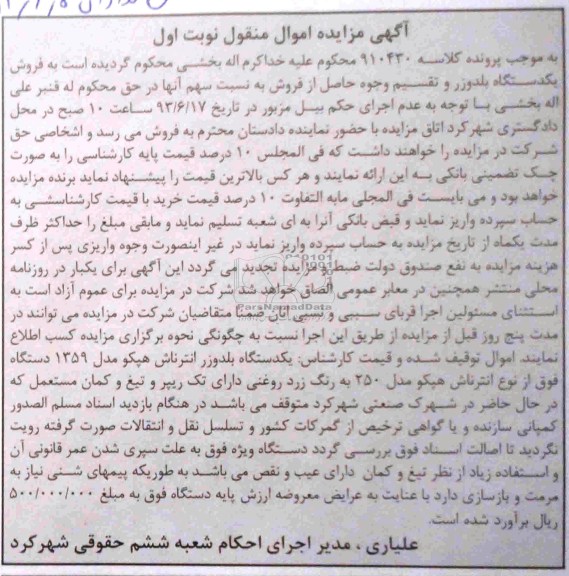 آگهی مزایده اموال منقول نوبت اول
به موجب پرونده کلاسه ۹۱۰۴۳۰ محکوم علیه خداکرم اله بخشی محکوم گردیده است به فروش
یکدستگاه بلدوزر و تقسیم وجوه حاصل از فروش به نسبت سهم آنها در حق محکوم له قنبر علی
اله بخشی با توجه به عدم اجرای حکم بیل مزبور در تاریخ ۹۳/۶/۱۷ ساعت ۱۰ صبح در محل
دادگستری شهرکرد اتاق مزایده با حضور نماینده دادستان محترم به فروش می رسد و اشخاصی حق
شرکت در مزایده را خواهند داشت که فی المجلس ۱۰ درصد قیمت پایه کارشناسی را به صورت
چک تضمینی بانکی به این ارائه نمایند و هر کس بالاترین قیمت را پیشنهاد نماید برنده مزایده
خواهد بود و می بایست فی المجلی مابه التفاوت ۱۰ درصد قیمت خرید با قیمت کارشناسی به
حساب سپرده واریز نماید و قبض بانکی آنرا به ای شعبه تسلیم نماید و مابقی مبلغ را حداکثر ظرف
مدت یکماه از تاریخ مزایده به حساب سپرده واریز نماید در غیر اینصورت وجوه واریزی پس از کسر
هزینه مزایده به نفع صندوق دولت ضبط و مزایده تجدید می گردد این آگهی برای یکبار در روزنامه
محلی منتشر همچنین در معابر عمومی الصاق خواهد شد شرکت در مزایده برای عموم آزاد است به
استثنای مسئولین اجرا قربای سببی و نسبی آنان ضمنا متقاضیان شرکت در مزایده می توانند در
مدت پنج روز قبل از مزایده از طریق این اجرا نسبت به چگونگی نحوه برگزاری مزایده کسب اطلاع
نمایند. اموال توقیف شده و قیمت کارشناس: یکدستگاه بلدوزر انترناش هپکو مدل ۱۳۵۹ دستگاه
فوق از نوع انترناش هپکو مدل ۲۵۰ به رنگ زرد روغنی دارای تک ریپر و تیغ و کمان مستعمل که
در حال حاضر در شهرک صنعتی شهرکرد متوقف می باشد در هنگام بازدید اسناد مسلم الصدور
کمپانی سازنده و یا گواهی ترخیص از گمرکات کشور و تسلسل نقل و انتقالات صورت گرفته رویت
نگردید تا اصالت اسناد فوق بررسی گردد دستگاه ویژه فوق به علت سپری شدن عمر قانونی آن
و استفاده زیاد از نظر تیغ و کمان دارای عیب و نقص می باشد به طوریکه پیمهای شنی نیاز به
مرمت و بازسازی دارد با عنایت به عرایض معروضه ارزش پایه دستگاه فوق به مبلغ ۵۰۰/۰۰۰/۰۰۰
ریال برآورد شده است.
علیاری ، مدیر اجرای احکام شعبه ششم حقوقی شهرکرد
ParsNamadData